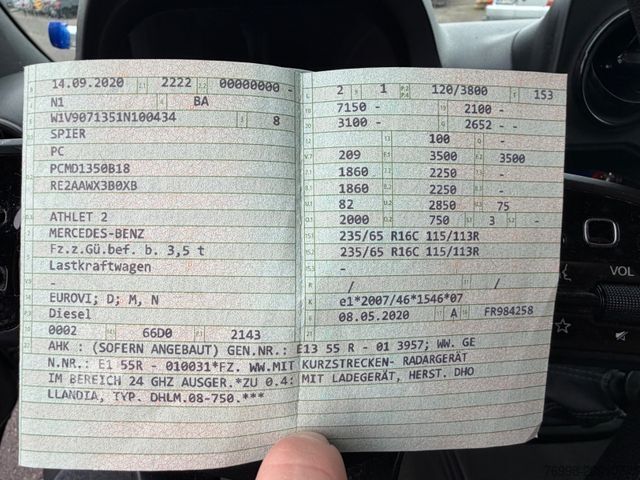 14.09.2020 2222 00000000 -
N1 BA
W1V9071351N100434 8
SPIER
PC
PCMD1350B18
RE2AAWX3B0XB
ATHLET 2
MERCEDES-BENZ
Fz.z.Gü.bef. b. 3,5 t
Lastkraftwagen
-
EUROVI; D; M, N
Diesel
0002 66D0 2143
2 1 120/3800 153
7150 - 2100 -
3100 - 2652 - -
100 -
209 3500 3500
1860 2250 -
1860 2250 -
82 2850 75
2000 750 3 -
235/65 R16C 115/113R
235/65 R16C 115/113R
-
/ /
e1*2007/46*1546*07
08.05.2020 A FR984258
AHK : (SOFERN ANGEBAUT) GEN.NR.: E13 55 R - 01 3957; WW. GE
N.NR.: E1 55R - 010031*FZ. WW.MIT KURZSTRECKEN- RADARGERÄT
IM BEREICH 24 GHZ AUSGER.*ZU 0.4: MIT LADEGERÄT, HERST. DHO
LLANDIA, TYP. DHLM.08-750.***
VOL